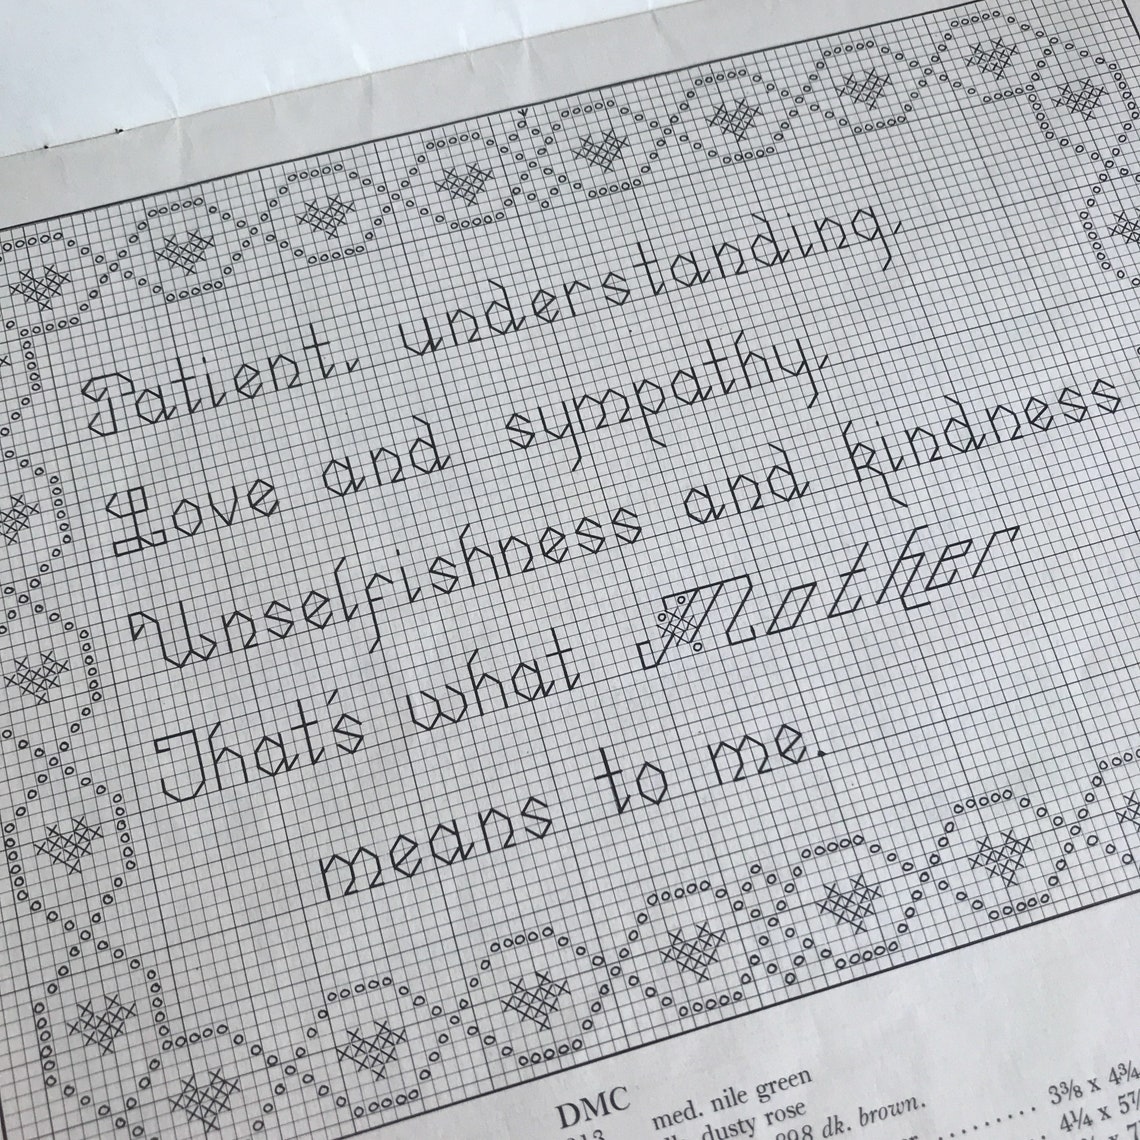 Patient, understanding,
Love and sympathy,
Unselfishness and kindness
That's what Mother
means to me.
DMC
med. nile green
dusty rose
dk. brown.
3⅜ x 4¾
4¼ x